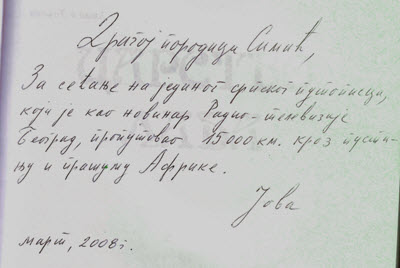 Драгој породици Симић,
За сећање на јединог српског путописца,
који је као новинар Радио-телевизије
Београд, пропутовао 15000 км. кроз пусти-
њу и прашуму Африке.
Јова
март, 2008 г.